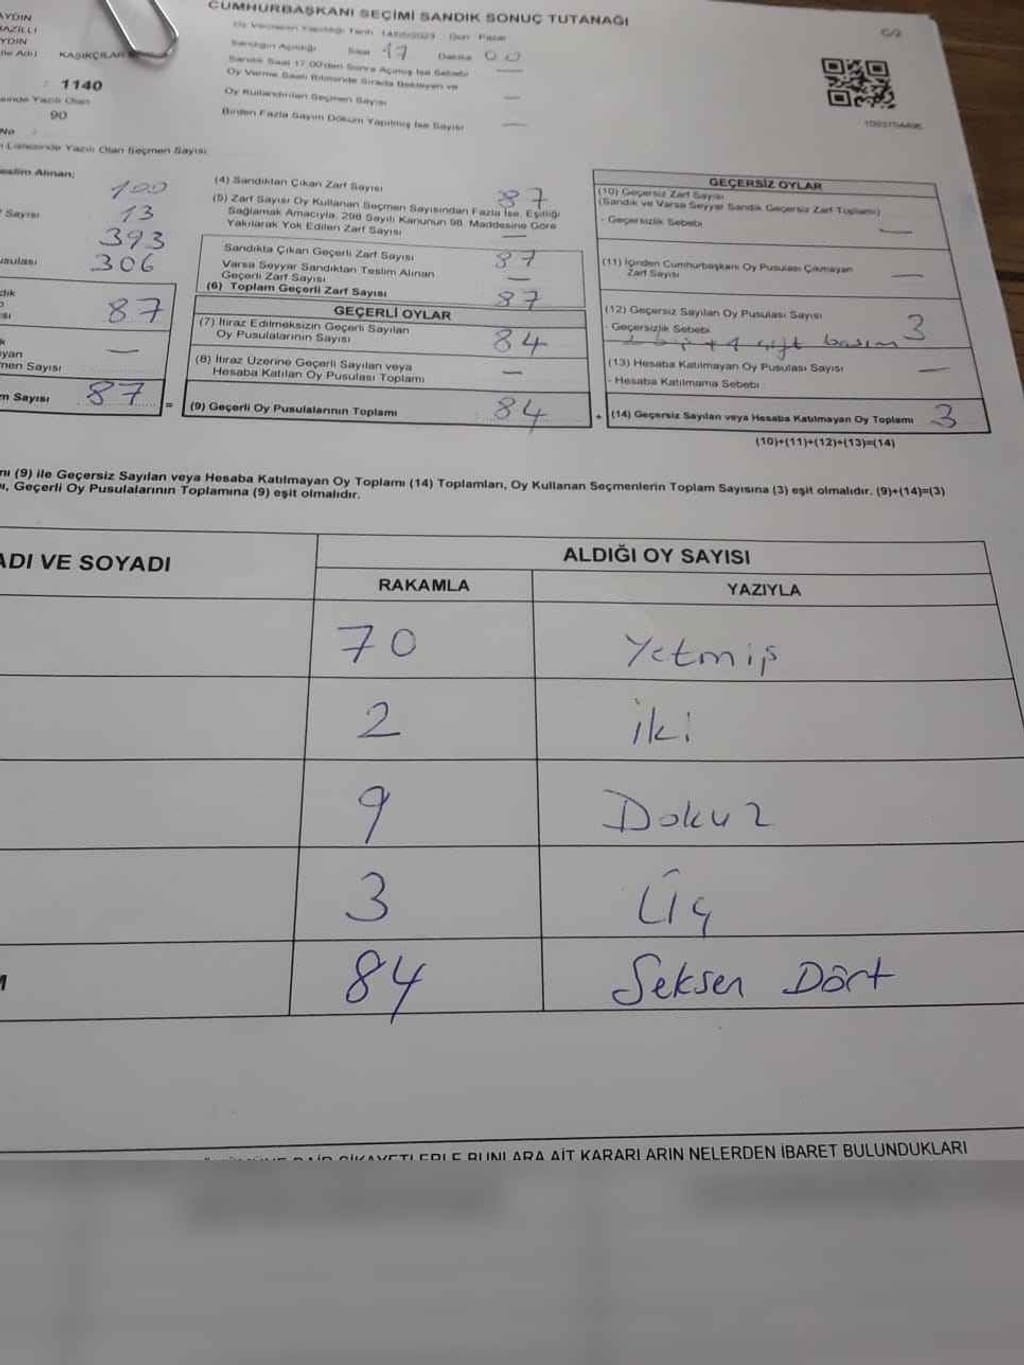 CUMHURBAŞKANI SEÇİMİ SANDIK SONUÇ TUTANAĞI
AYDIN
NAZİLLİ
AYDIN
KAŞIKÇILAR
1140
90
Saat 17 Dakika 00
Sandık Saat 17:00'den Sonra Açılmış İse Sebebi —
Oy Verme Saati Bitiminde Sırada Bekleyen ve
Oy Kullandırılan Seçmen Sayısı —
Birden Fazla Sayım Döküm Yapılmış İse Sayısı —
Listesinde Yazılı Olan Seçmen Sayısı
Teslim Alınan;
100
Sayısı 13
393
306
87
—
87 =
(4) Sandıktan Çıkan Zarf Sayısı 87
(5) Zarf Sayısı Oy Kullanan Seçmen Sayısından Fazla İse, Eşitliği
Sağlamak Amacıyla, 298 Sayılı Kanunun 98. Maddesine Göre
Yakılarak Yok Edilen Zarf Sayısı —
Sandıkta Çıkan Geçerli Zarf Sayısı 87
Varsa Seyyar Sandıktan Teslim Alınan
Geçerli Zarf Sayısı —
(6) Toplam Geçerli Zarf Sayısı 87
GEÇERLİ OYLAR
(7) İtiraz Edilmeksizin Geçerli Sayılan
Oy Pusulalarının Sayısı 84
(8) İtiraz Üzerine Geçerli Sayılan veya
Hesaba Katılan Oy Pusulası Toplamı —
(9) Geçerli Oy Pusulalarının Toplamı 84 +
GEÇERSİZ OYLAR
(10) Geçersiz Zarf Sayısı
(Sandık ve Varsa Seyyar Sandık Geçersiz Zarf Toplamı)
- Geçersizlik Sebebi —
(11) İçinden Cumhurbaşkanı Oy Pusulası Çıkmayan
Zarf Sayısı —
(12) Geçersiz Sayılan Oy Pusulası Sayısı 3
- Geçersizlik Sebebi
çift basım
(13) Hesaba Katılmayan Oy Pusulası Sayısı —
- Hesaba Katılmama Sebebi
(14) Geçersiz Sayılan veya Hesaba Katılmayan Oy Toplamı 3
(10)+(11)+(12)+(13)=(14)
(9) ile Geçersiz Sayılan veya Hesaba Katılmayan Oy Toplamı (14) Toplamları, Oy Kullanan Seçmenlerin Toplam Sayısına (3) eşit olmalıdır. (9)+(14)=(3)
Geçerli Oy Pusulalarının Toplamına (9) eşit olmalıdır.
ADI VE SOYADI
ALDIĞI OY SAYISI
RAKAMLA YAZIYLA
70 Yetmiş
2 iki
9 Dokuz
3 Üç
84 Seksen Dört
BUNLARA AİT KARARLARIN NELERDEN İBARET BULUNDUKLARI